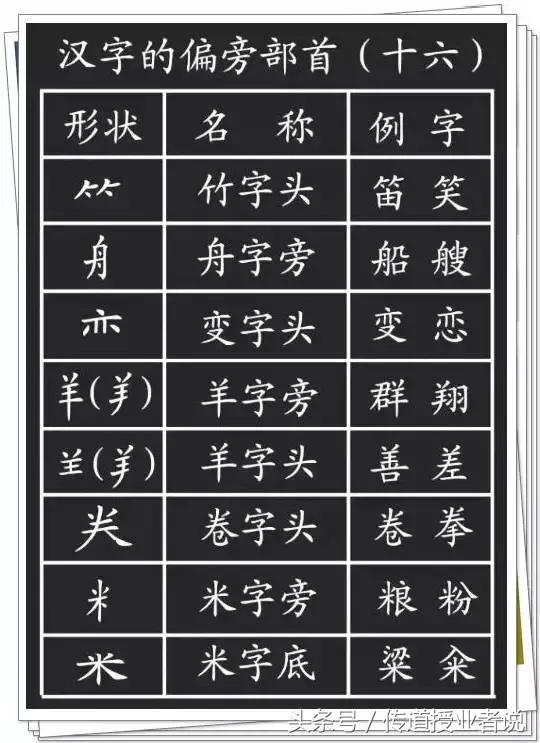 汉字的偏旁部首（十六）
形状 名 称 例 字
⺮ 竹字头 笛 笑
舟 舟字旁 船 艘
亦 变字头 变 恋
羊(⺶) 羊字旁 群 翔
𦍌(⺶) 羊字头 善 差
龹 卷字头 卷 拳
米 米字旁 粮 粉
米 米字底 粱 籴
头条号／传道授业者说